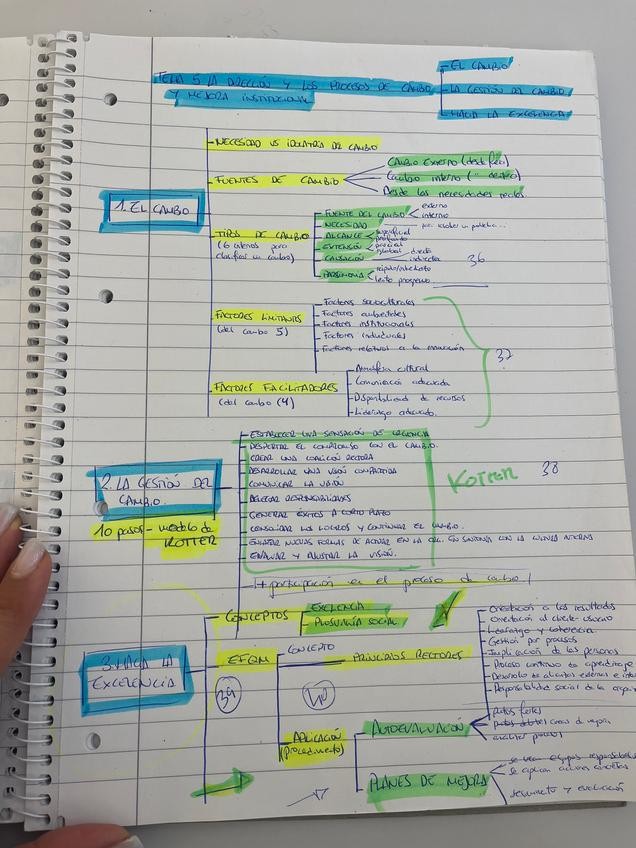 TEMA 5 LA DIRECCIÓN Y LOS PROCESOS DE CAMBIO
Y MEJORA INSTITUCIONAL
EL CAMBIO
LA GESTIÓN DEL CAMBIO
HACIA LA EXCELENCIA
1. EL CAMBIO
NECESIDAD VS IDOLATRÍA DEL CAMBIO
FUENTES DE CAMBIO
Cambio externo (desde fuera)
Cambio interno (" dentro)
Desde las necesidades reales
TIPOS DE CAMBIO
(6 criterios para
clasificar un cambio)
FUENTE DEL CAMBIO
externo
interno
NECESIDAD
por resolver un problema...
ALCANCE
superficial
profundo
EXTENSIÓN
parcial
global
CAUSACIÓN
directa
indirecta
rápido/inmediato
lento progresivo
36
FACTORES LIMITANTES
(del cambio 5)
Factores socioculturales
Factores ambientales
Factores institucionales
Factores individuales
Factores relativos a la innovación
37
FACTORES FACILITADORES
(del cambio (4)
Atmósfera cultural
Comunicación adecuada
Disponibilidad de recursos
Liderazgo adecuado.
2. LA GESTIÓN DEL
CAMBIO.
10 pasos - modelo de
KOTTER
ESTABLECER UNA SENSACIÓN DE URGENCIA
DESPERTAR EL COMPROMISO CON EL CAMBIO.
CREAR UNA COALICIÓN RECTORA
DESARROLLAR UNA VISIÓN COMPARTIDA
COMUNICAR LA VISIÓN
DELEGAR RESPONSABILIDADES
GENERAR ÉXITOS A CORTO PLAZO
CONSOLIDAR LOS LOGROS Y CONTINUAR EL CAMBIO.
NUEVAS FORMAS DE ACTUAR EN LA ORG. EN SINTONÍA CON LA CULTURA INTERNA
EVALUAR Y AJUSTAR LA VISIÓN.
KOTTER
38
+ participación en el proceso de cambio!
3. HACIA LA
EXCELENCIA
CONCEPTOS
EXCELENCIA
PLUSVALÍA SOCIAL
EFQM
39
CONCEPTO
PRINCIPIOS RECTORES
40
Orientación a los resultados
Orientación al cliente-usuario
Liderazgo y coherencia
Gestión por procesos
Implicación de las personas
Proceso continuo de aprendizaje
Desarrollo de alianzas externas e inte
Responsabilidad social de la organi
APLICACIÓN
(procedimiento)
AUTOEVALUACIÓN
puntos fuertes
puntos débiles áreas de mejora
analizar procesos
PLANES DE MEJORA
se crean equipos responsables
se aplican acciones concretas
seguimiento y evaluación